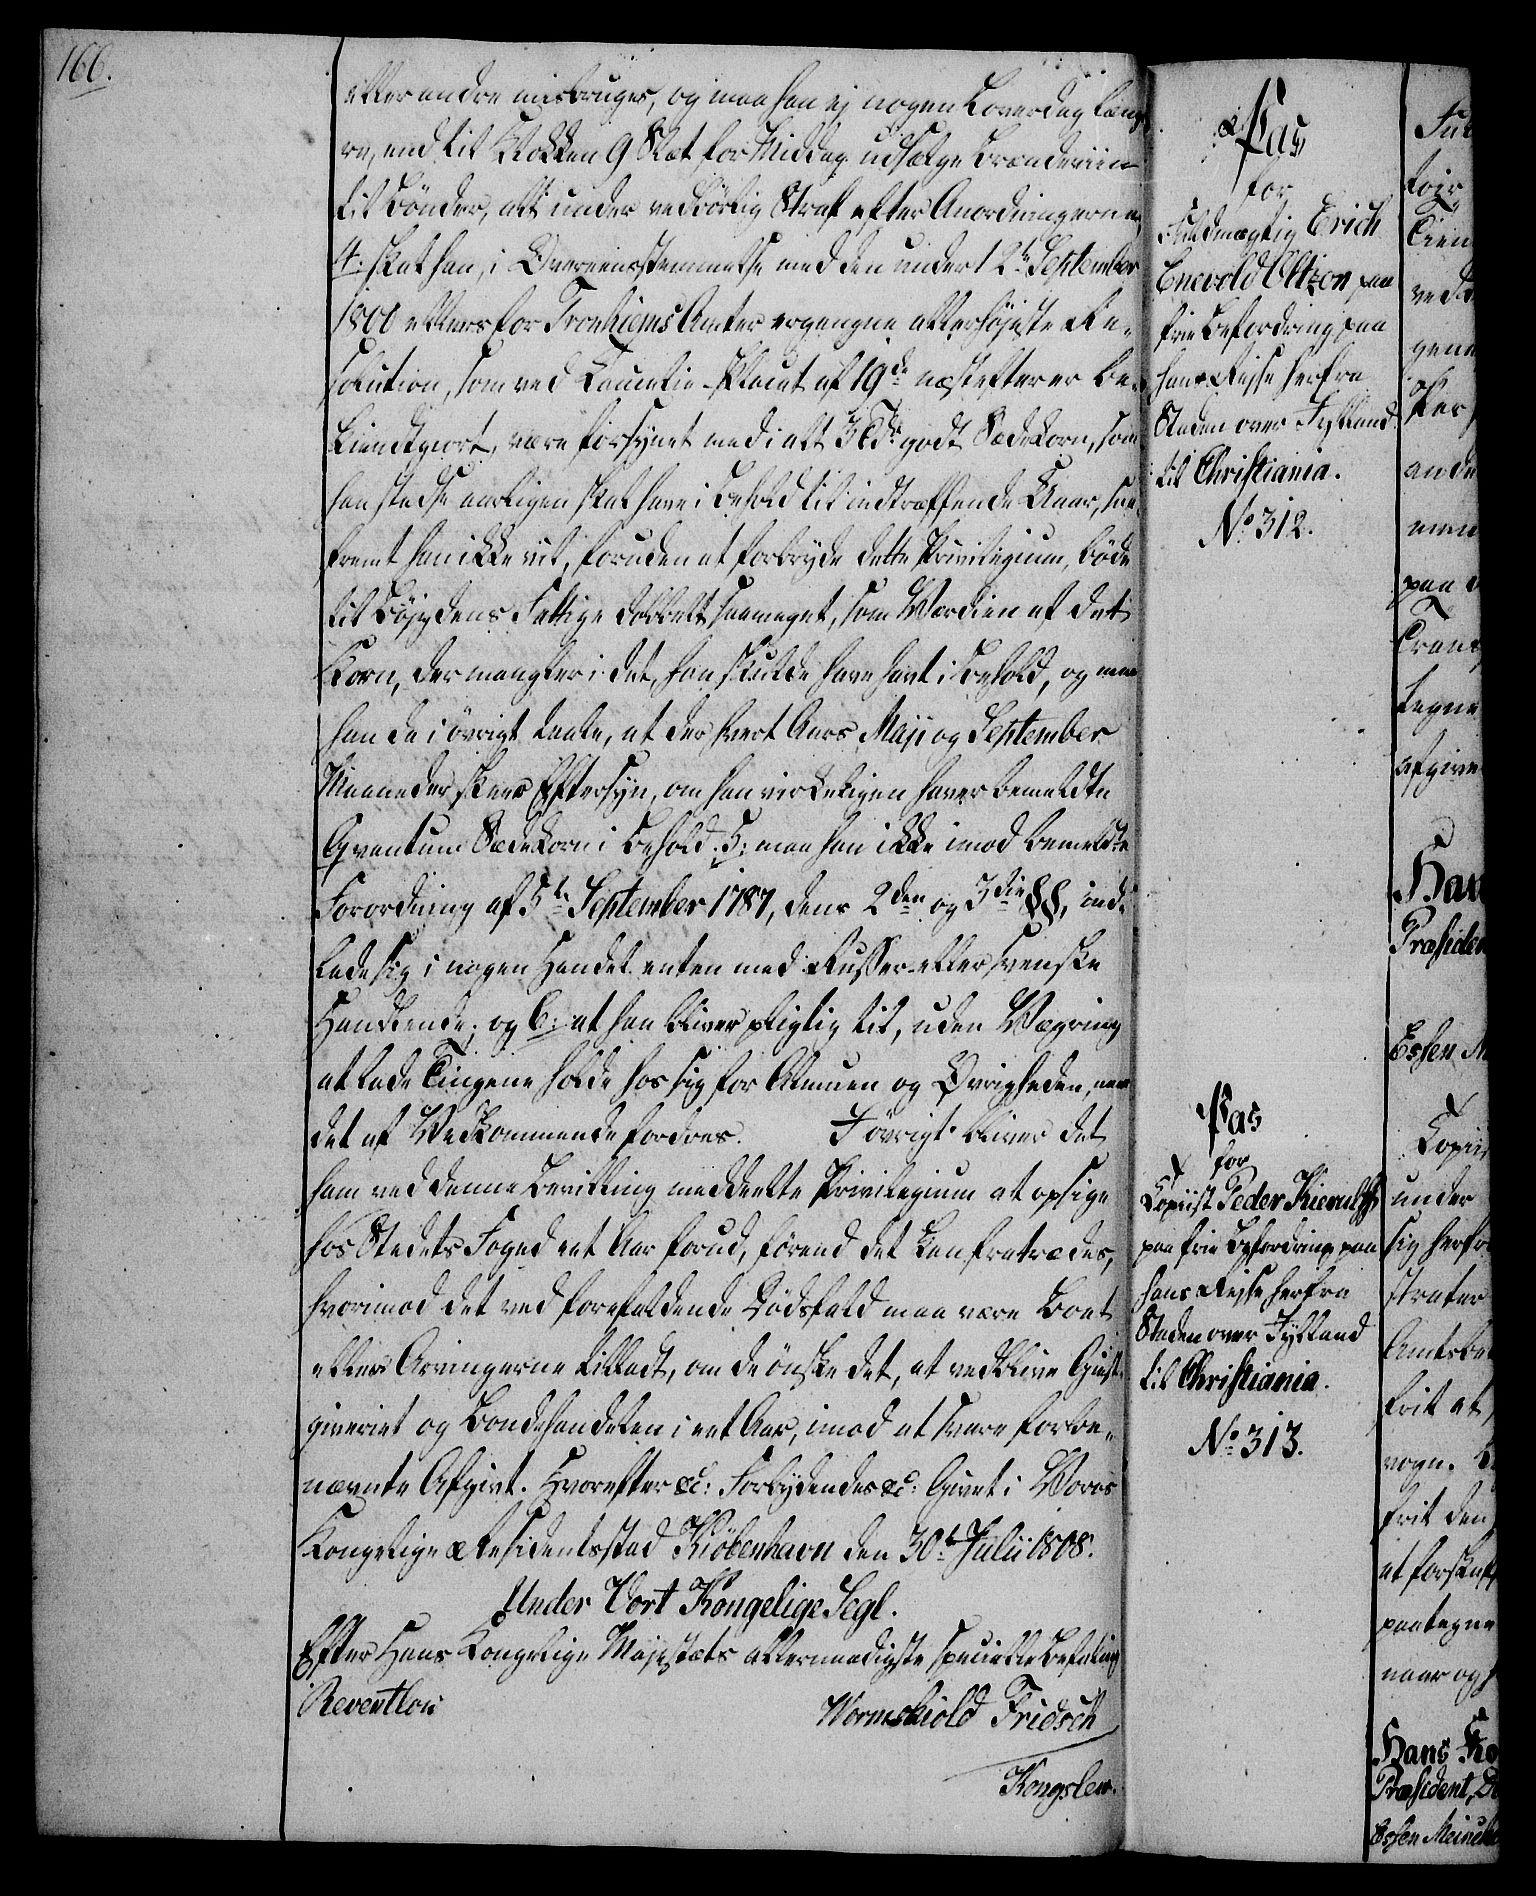 166.
eller andre misbruges, og maa han ej nogen Løverdag læng-
re, end til Klokken 9 Slet for Middag udsælge Brændeviin
til Bönder, alt under vedbörlig Straf efter Anordningerne,
4: skal han, i Overeensstemmelse med den under 12te September
1800 ellers for Tronhiems Amter ergangne allerhöjeste Re-
solution, som ved Cancelie-Placat af 19de næstefter er be-
kiendtgiort, være forsynet med i alt 3 Tdr godt Sædekorn, som
han stedse aarligen skal have i Behold til indtræffende Uaar, saa-
fremt han ikke vil, foruden at forbryde dette Privilegium, böde
til Böjgdens Fattige dobbelt saameget, som Værdien af det
Korn, der mangler i det, han skulde have havt i Behold, og maa
han da i övrigt taale, at der hvert Aars Maji og September
Maaneder skeer Eftersyn, om han virkeligen haver bemeldte
Qvantum Sædekorn i Behold. 5: maa han ikke imod bemeldte
Forordning af 5te September 1787, dens 2den og 3die §§, ind-
lade sig i nogen Handel enten med Russer eller svenske
Handlende; og 6: at han bliver pligtig til, uden Vægring
at lade Tingene holde hos sig for Almuen og Øvrigheden, naar
det af Vedkommende fordres. I övrigt bliver det
ham ved denne Bevilling meddeelte Privilegium at opsige
hos Stedets Foged eet Aar forud, förend det kan fratrædes,
hvorimod det ved forefaldende Dödsfald maa være Boet
eller Arvingerne tilladt, om de önske det, at vedblive Giest-
giveriet og Bondehandelen i eet Aar, imod at svare forbe-
nævnte Afgivt. Hvorefter &c: Forbydendes &c: Givet i Vores
Kongelige Residentsstad Kiöbenhavn den 30te Julii 1808.
Under Vort Kongelige Segl.
Efter Hans Kongelige Majestæts allernaadigste specielle Befaling
Reventlou
Wormskiold Fridsch
Kongslew.
Pas
for
Fuldmægtig Erich
Enevold Oltzon paa
frie Befordring paa
hans Rejse herfra
Staden over Jylland
til Christiania.
No 312.
Pas
for
Copiist Peder Kierulff
paa frie Befordring paa
hans Rejse herfra
Staden over Jylland
til Christiania.
No 313.
under
sig herfra
frit at
frit den
Hans
Præsident,
Essen Meinche